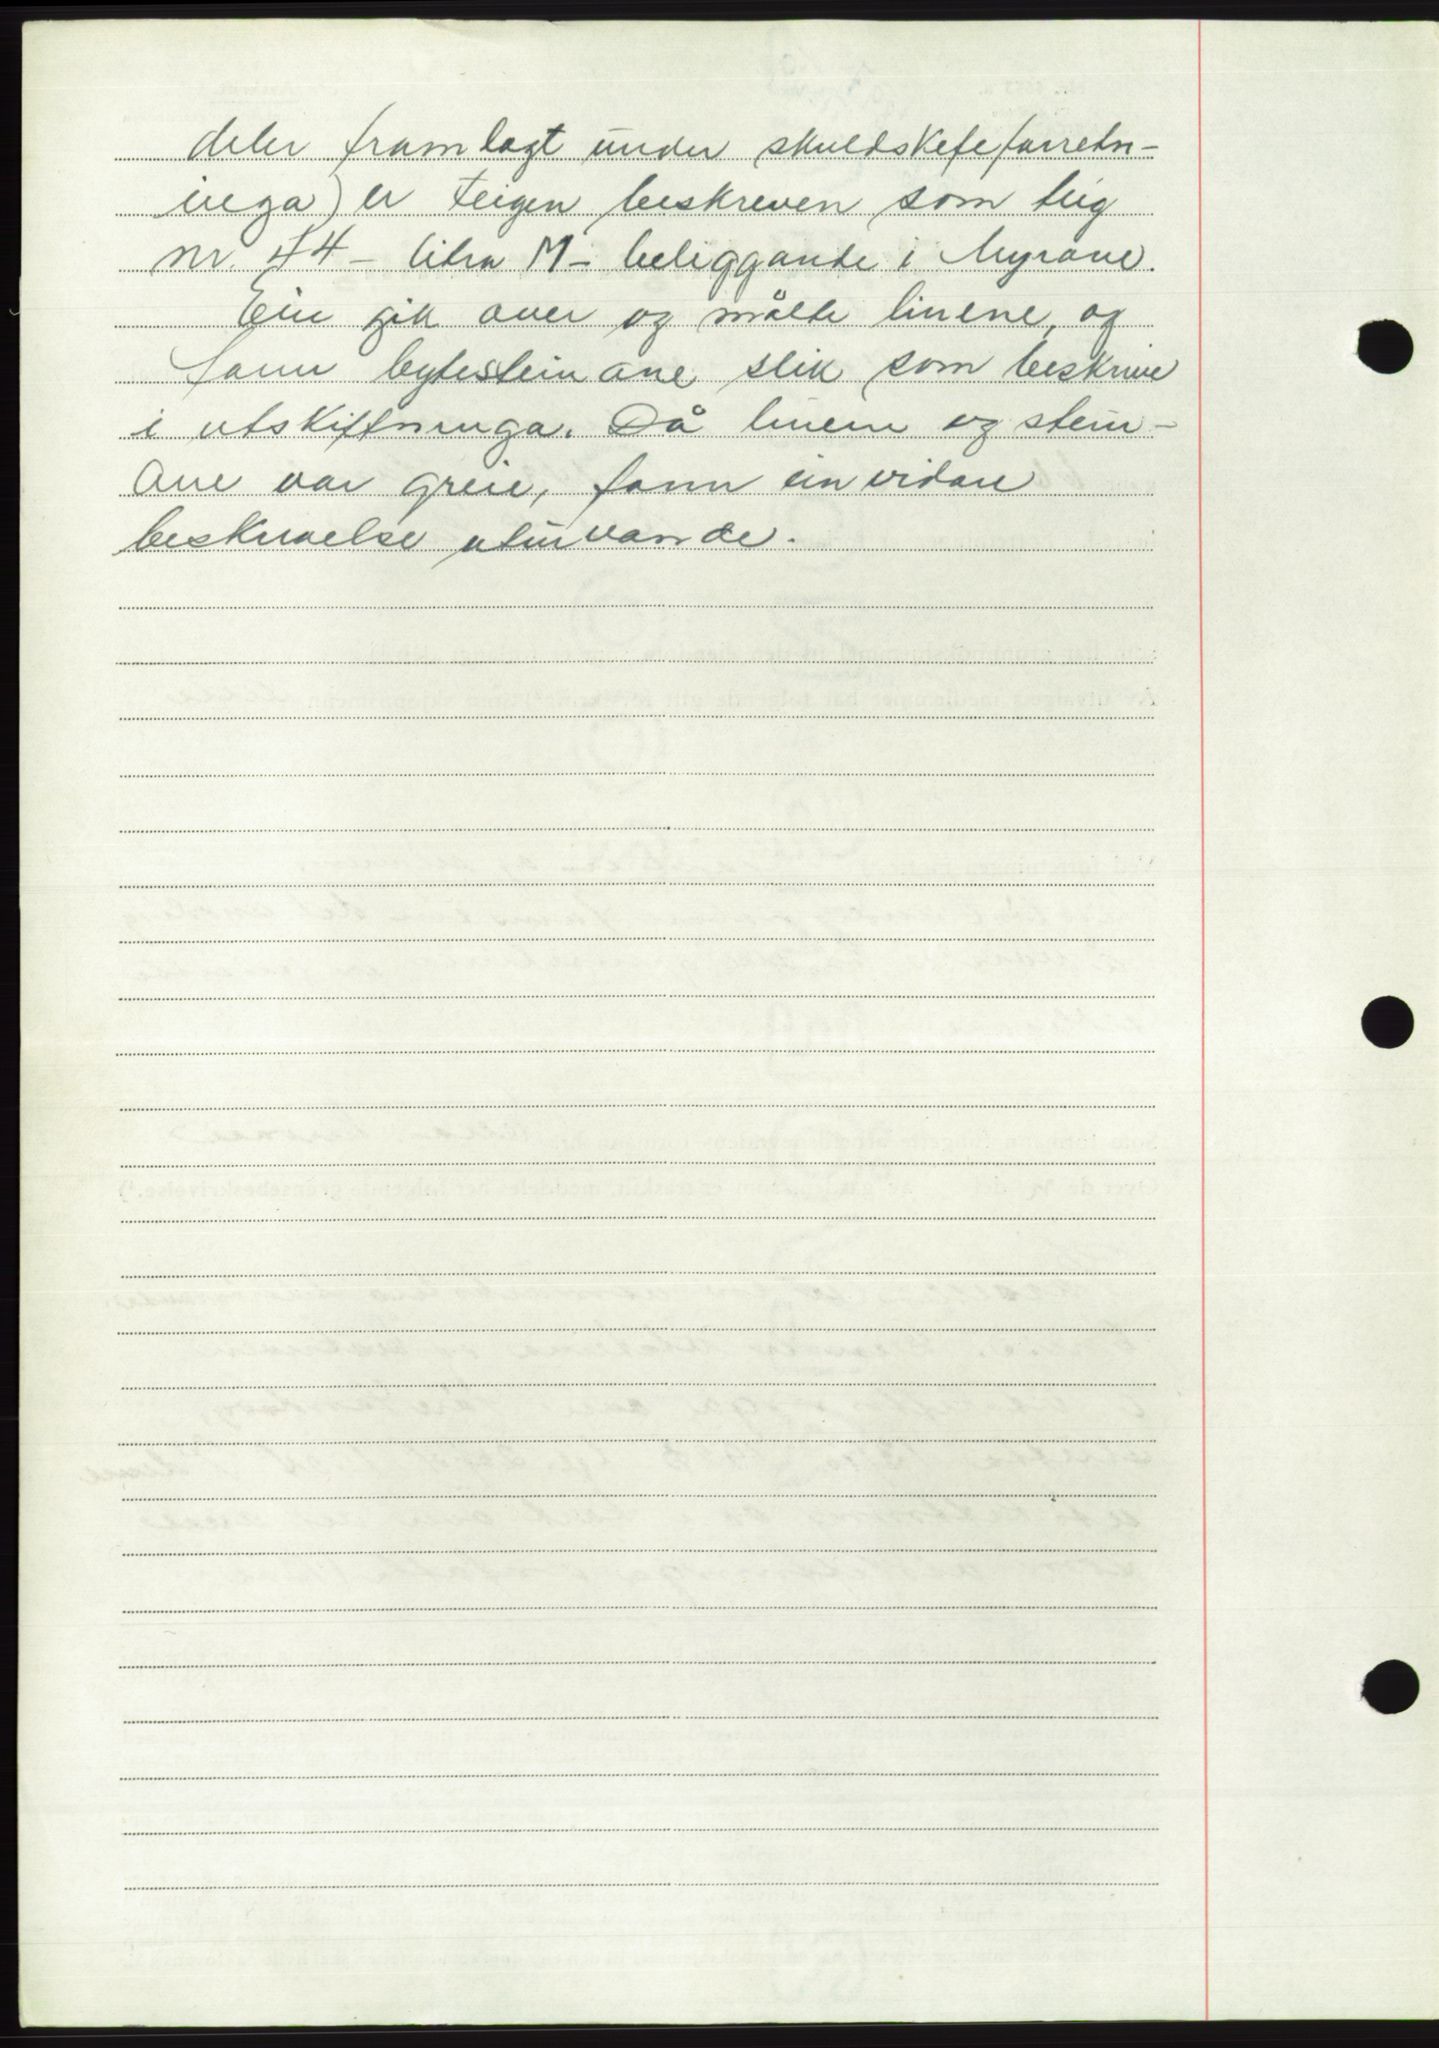 deler framlagt under skuldskefeforretn-
inga) er teigen beskreven som teig
nr. 44 - litra M - beliggande i Myrane.
Ein gik over og målte linene, og
fann bytesteinane slik som beskrive
i utskiftninga. Då linene og stein-
ane var greie, fann ein vidare
beskrivelse uturvande.